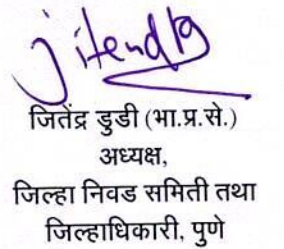 Jitendra
जितेंद्र डुडी (भा.प्र.से.)
अध्यक्ष,
जिल्हा निवड समिती तथा
जिल्हाधिकारी, पुणे